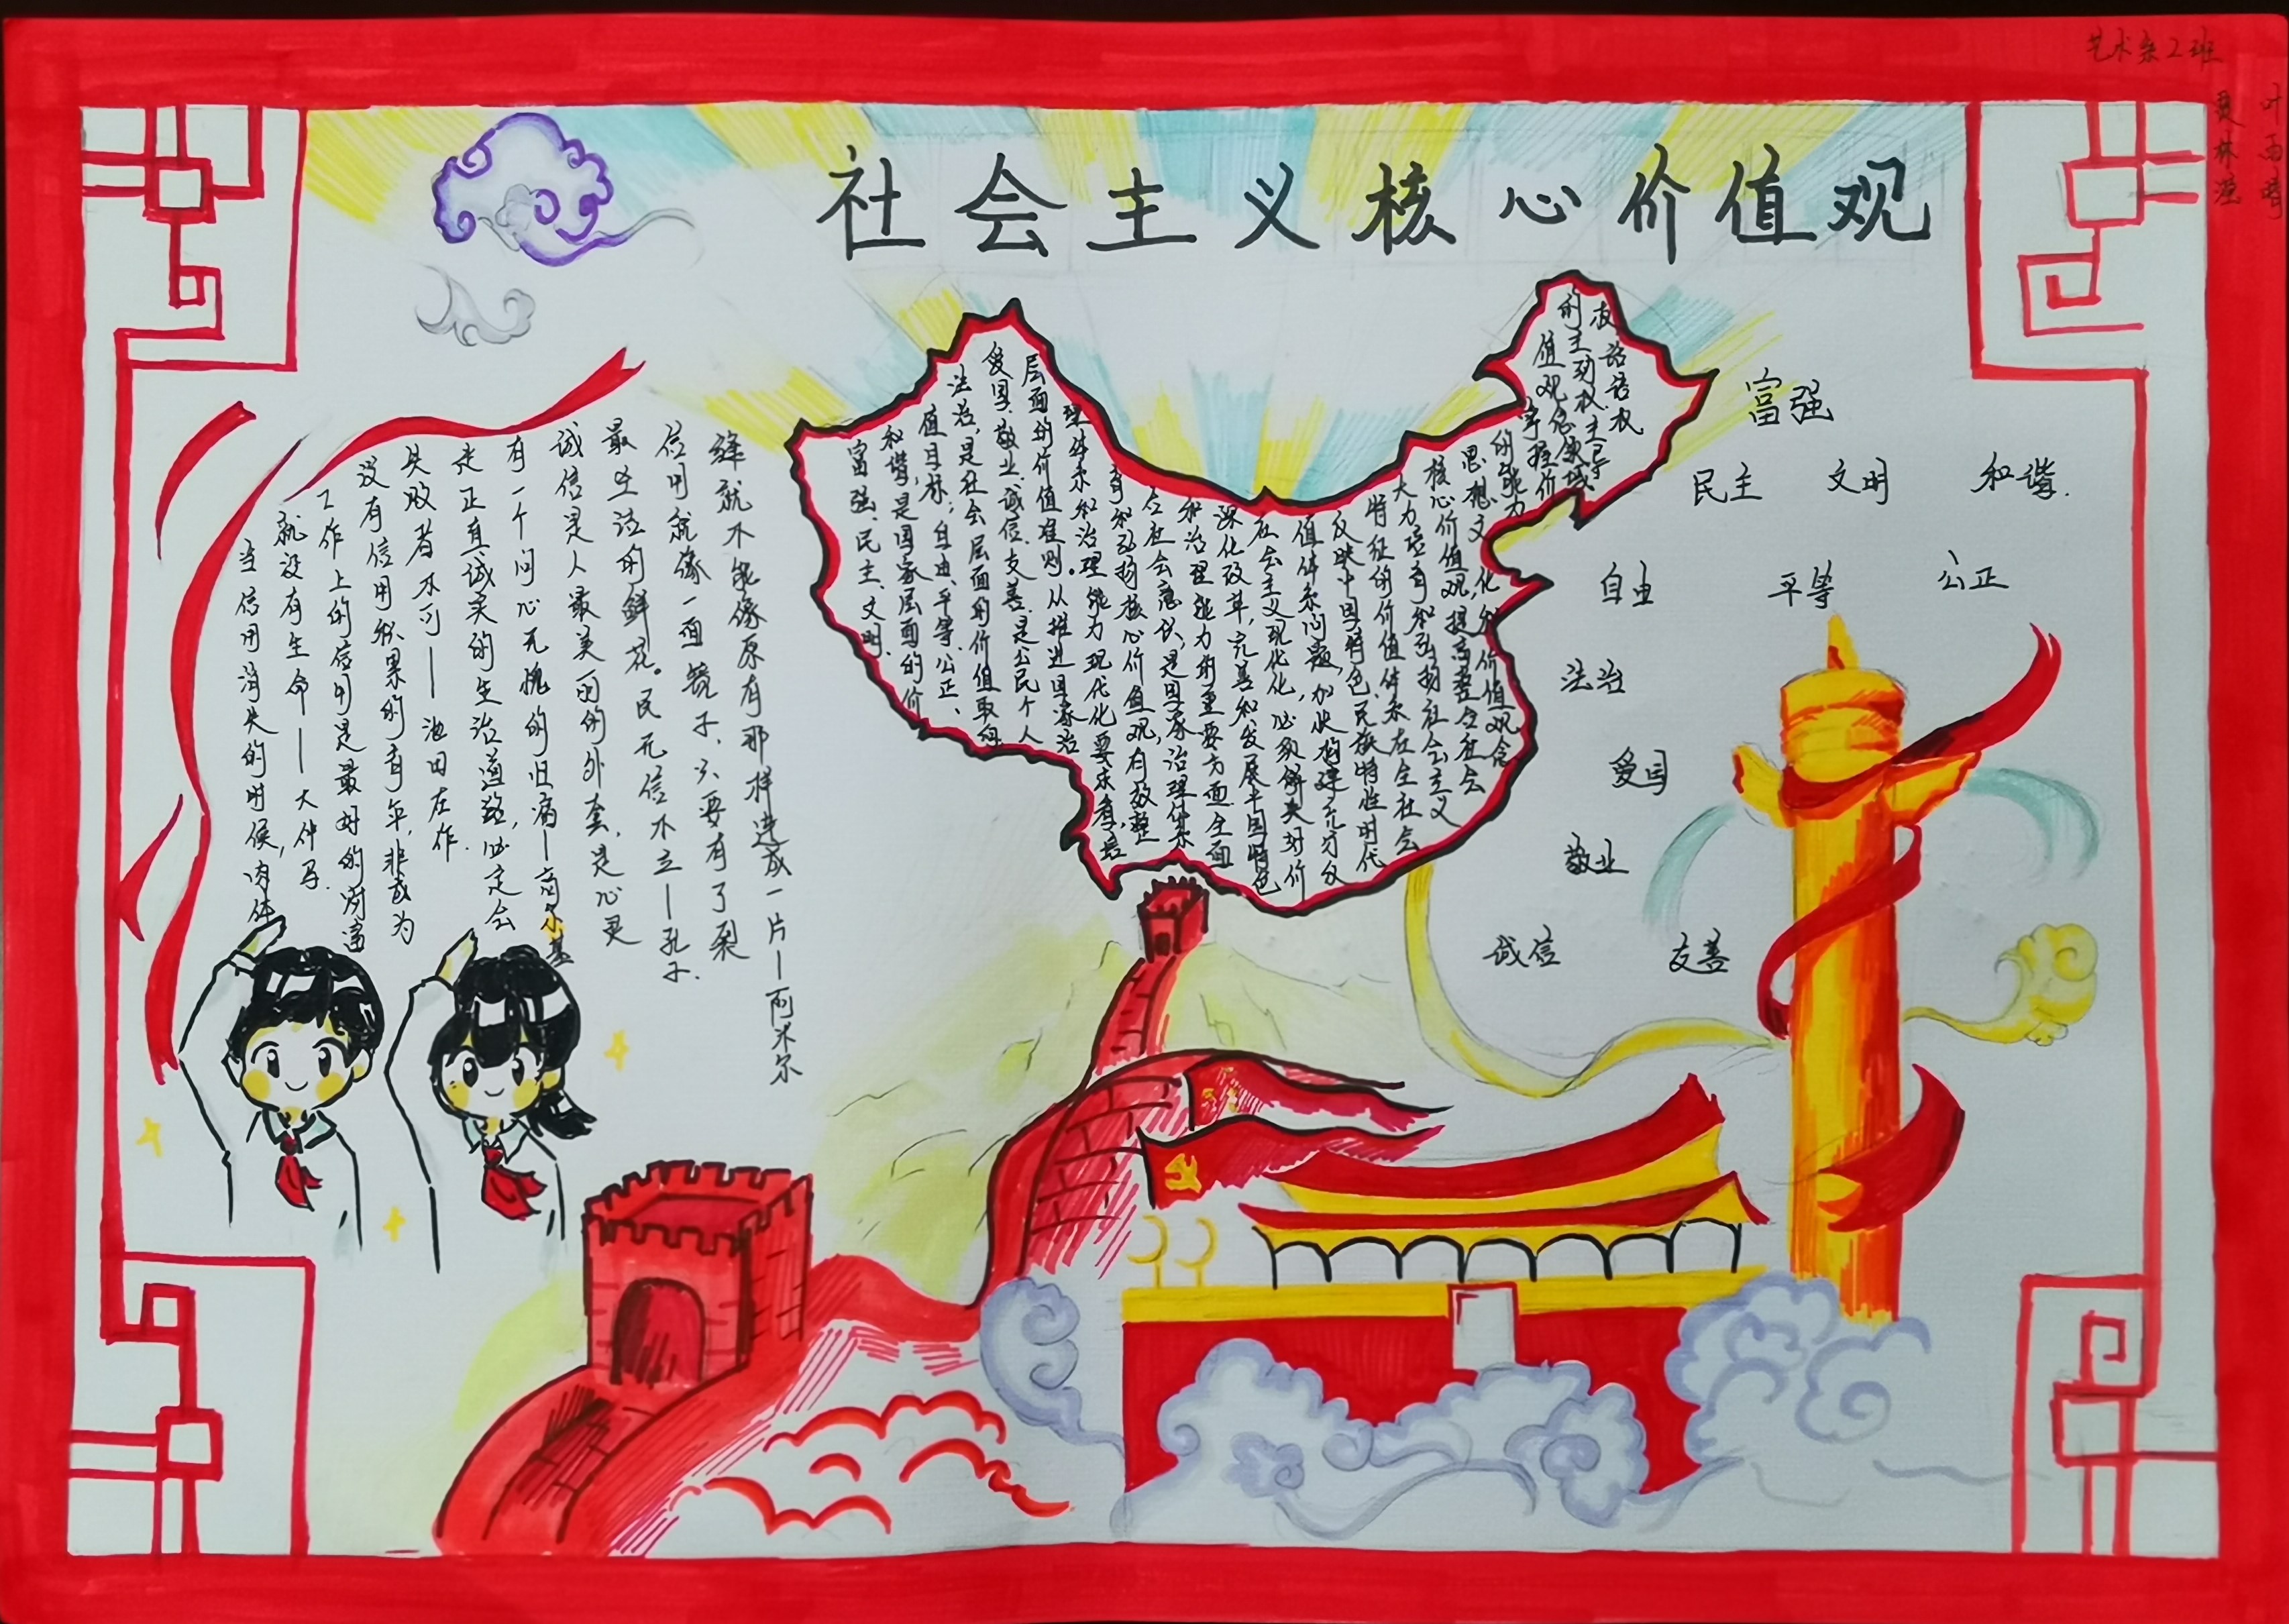 艺术系2班
叶雨晴
社会主义核心价值观
当信用消失的时候,肉体
就没有生命——大仲马
工作上的信用是最好的财富
没有信用积累的青年,非成为
失败者不可——池田左作
走正直诚实的生活道路,必定会
有一个问心无愧的归病—高尔基
诚信是人最美丽的外套,是心灵
最圣洁的鲜花。民无信不立—孔子
信用就像一面镜子、只要有了裂
缝就不能像原有那样连成一片—阿米尔
富强、民主、文明、
和谐,是国家层面的价
值目标,自由、平等、公正、
法治,是社会层面的价值取向
爱国、敬业、诚信、友善,是公民个人
层面的价值准则。从推进国家治
理体系和治理能力现代化要求看,培
育和弘扬核心价值观,有效整
合社会意识,是国家治理体系
和治理能力的重要方面全面
深化改革,完善和发展中国特色
社会主义现代化,必须解决好价
值体系问题,加快构建充分
反映中国特色、民族特性、时代
特征的价值体系在全社会
大力培育和弘扬社会主义
核心价值观,提高整合社会
思想文化和价值观念
的能力
握价
值观念领域
的主动权、主导
权、话语权
富强
民主 文明 和谐.
自由 平等 公正
法治
爱国
敬业
诚信 友善